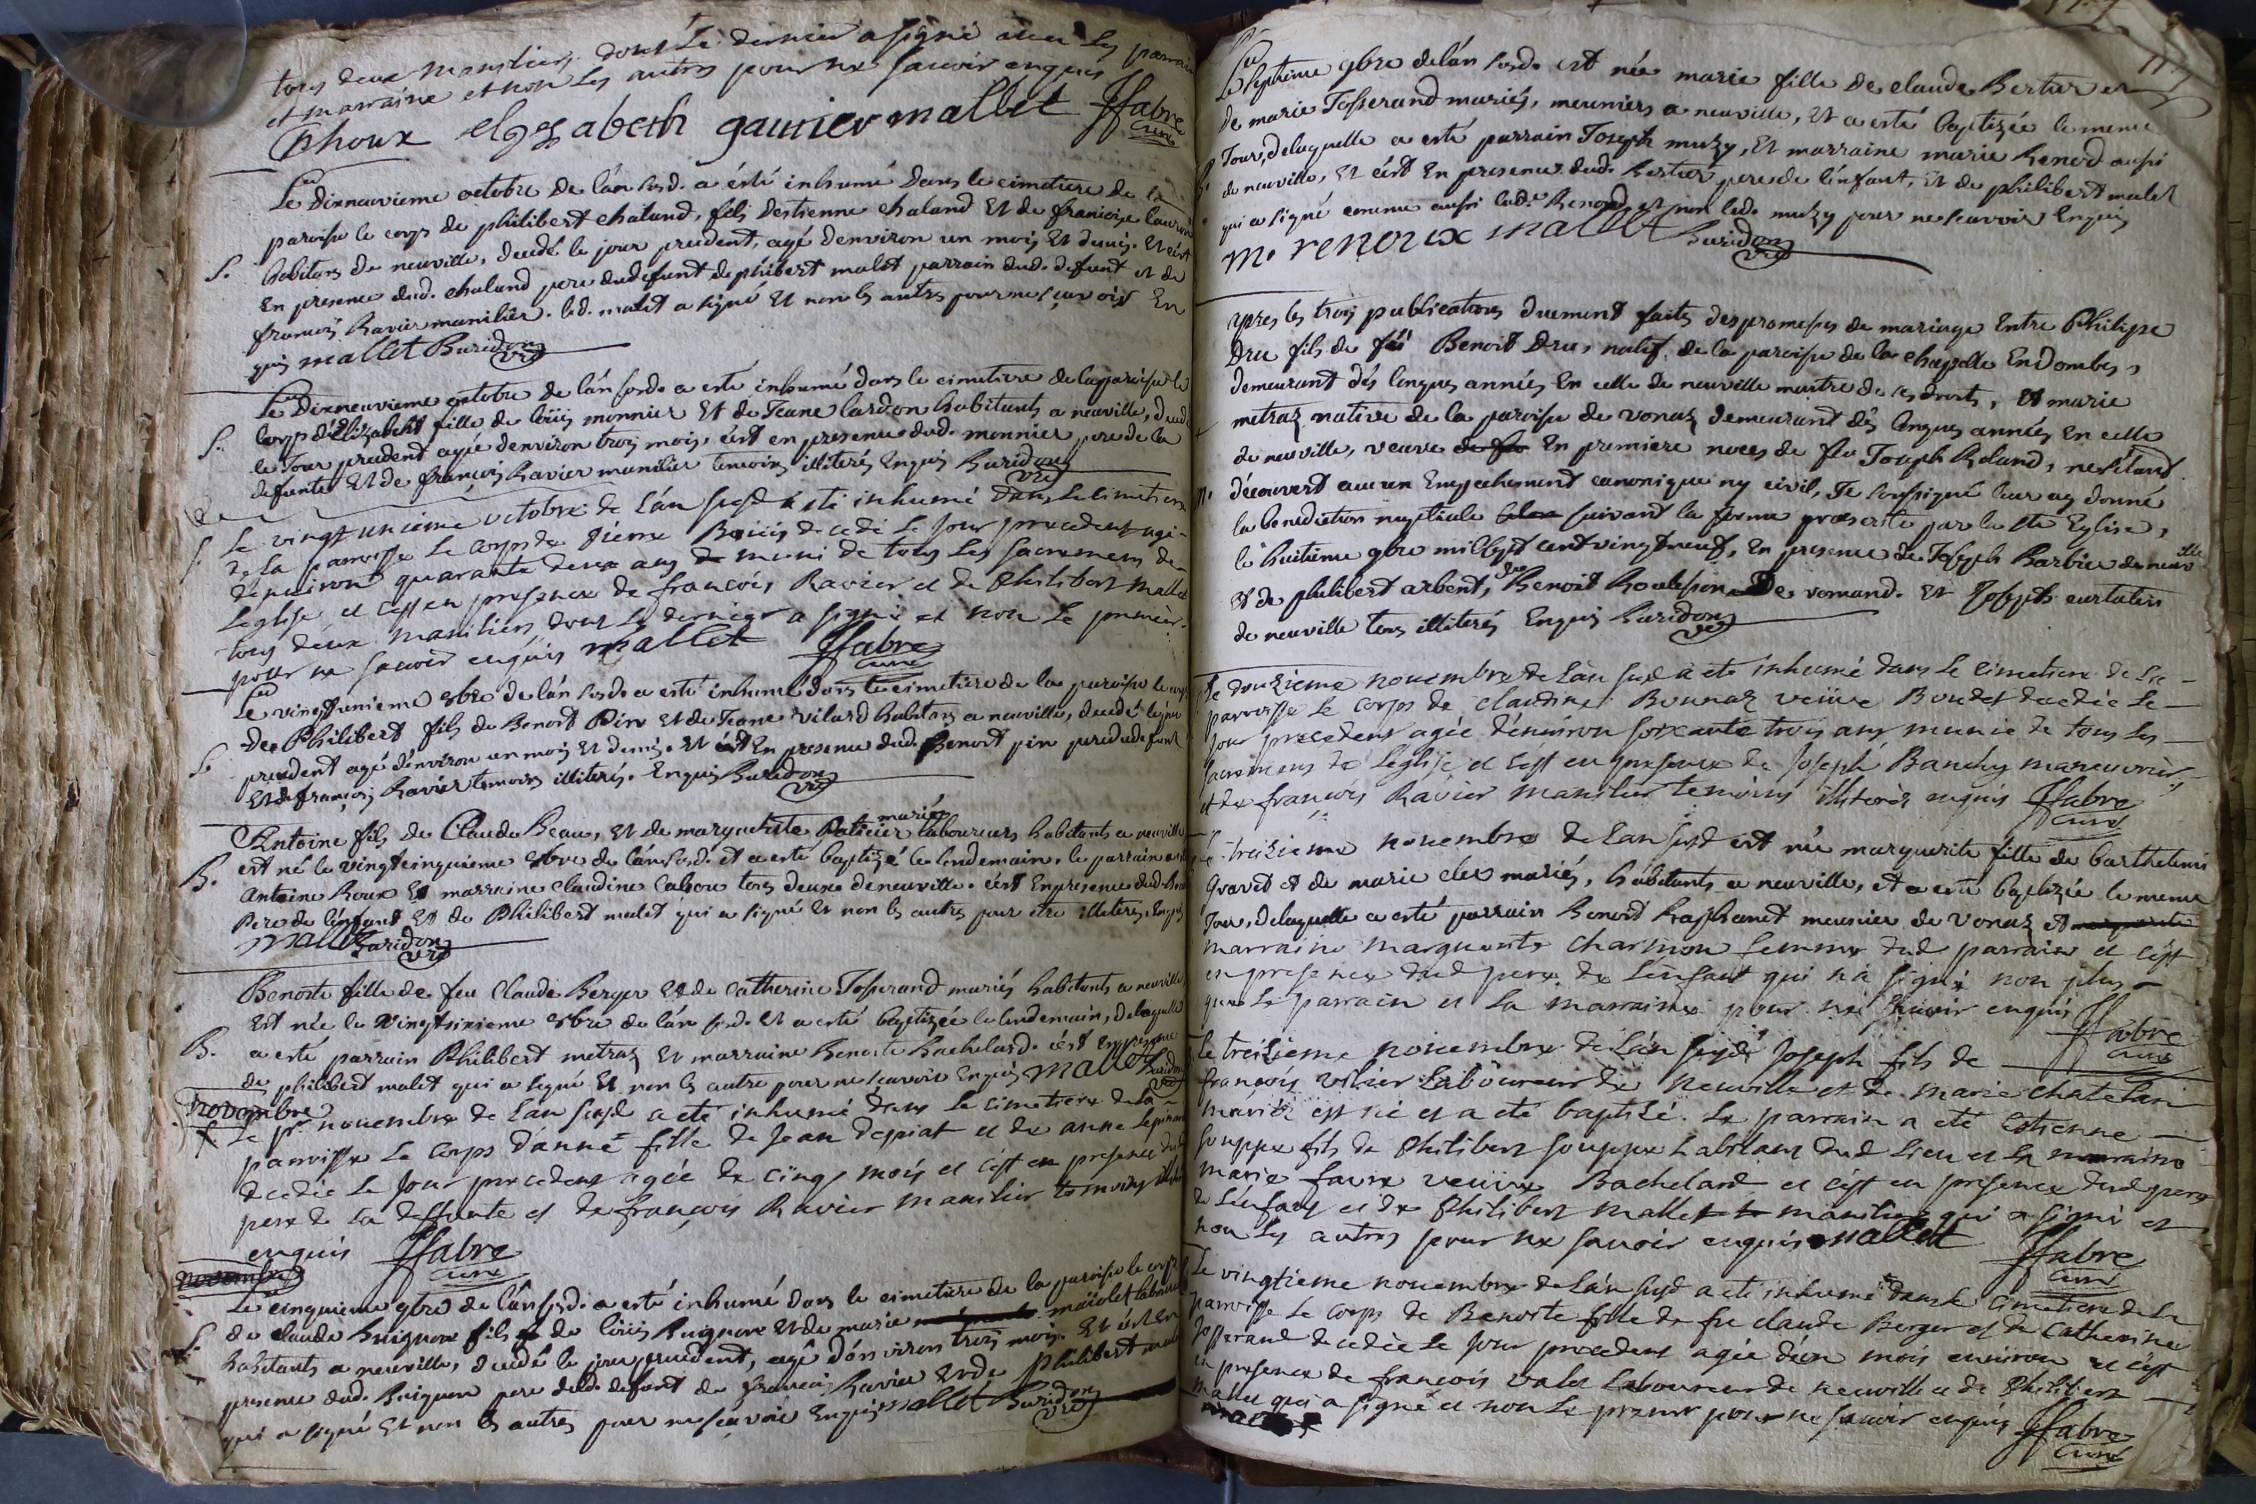 tous deux maniliers dont le dernier a signé avec les parrain
et marraine et non les autres pour ne savoir enquis
Phoux elyzabeth gaurier mallet JFabre
curé
Le Dixneuvieme octobre de lán susd. a ésté inhumé dans le cimetiere de la
paroisse le corps de philibert chaland, fils destienne chaland Et de francoise lauron
habitans de neuville, decedé le jour precedent, agé denviron un mois Et demis. Et cést
S. En presence dud. chaland pere dudefunt de philibert malet parrain dud. defunt et de
francois Ravier manilier. led. malet a signé Et non les autres pour ne sçavoir En
quis mallet Buridon
vic
Le Dixneuvieme octobre de lán susd. a esté inhumé dans le cimetiere de la paroisse le
corps d'Elizabeht fille de loüis monnier Et de Jeane lardon habitants a neuville, decedé
S. le Jour precedent agée denviron trois mois. cést en presence dud. monnier pere de la
defunte Et de françois Ravier manilier temoins illiterés Enquis Buridon
vic
Le vingt unieme octobre de lán susd a été inhumé dans le cimetiere
S. de la parroisse le corps de pierre Bouis decedé le Jour precedent agé
denuiron quarante deux ans muni de tous les sacremens de
leglise et cest en presence de francois Ravier et de Philibert mallet
tous deux maniliers dont le dernier a signé et non le premier
pour ne savoir enquis mallet JFabre
curé
Le vingtunieme 8bre de lán susd. a esté inhumé dans le cimetiere de la paroisse le corps
de Philibert fils de Benoit Pin Et de Jeane vilard habitans a neuville, decedé le jour
S. precedent agé denviron un mois Et demis. Et cést En presence dud. Benoit pin pere du defunt
Et de françois Ravier temoins illiterés. Enquis Buridon
vic
Antoine fils de Claude Beau, Et de marguerite Paticier mariés laboureurs habitants a neuville
est né le vingtcinquieme 8bre de lán susd. et a esté baptizé le lendemain. le parrain a esté
B. Antoine Roux Et marraine claudine Cabou tous deux de neuville. cést En presence dud. Beau
Pere de lénfant Et de Philibert malet qui a signé Et non les autres pour etre illiterés. Enquis
mallet Buridon
vic
Benoite fille de feu Claude Berger Et de catherine Josserand mariés habitants a neuville
Est née le vingtsixieme 8bre de lán susd. Et a esté baptizée le lendemain, de laquelle
B. a esté parrain Philibert metraz Et marraine Benoite Bachelard. cést En presence
de philibert malet qui a signé Et non les autre pour ne scavoir Enquis mallet Buridon
vic
novembre
S Le pr. nouembre de lan susd a eté inhumé dans le cimetiere de la
parroisse le corps d'anne fille de Jean depiat et de anne
decedée le Jour precedent agée de cinq mois et cest en presence dud
pere de la deffunte et de françois Ravier manilier temoins
enquis JFabre
curé
Le cinquieme 9bre de lán susd. a esté inhumé dans le cimetiere de la paroisse le corps
de claude Buignon fils de loüis Buignon Et de marie maïolet laboureurs
S. habitants a neuville, decedé le jour precedent, agé d'environ trois mois. Et cést En
presence dud. Buignon pere dud. defunt de francois Ravier Et de philibert malet
qui a signé Et non les autres pour ne sçavoir Enquis mallet Buridon
vic
Le septieme 9bre de lán susd. est née marie fille de claude Bertier et
de marie Josserand mariés, meuniers a neuville, Et a esté baptizée le meme
B. Jour, de laquelle a esté parrain Joseph muzy, Et marraine marie Renod aussi
de neuville, Et cést En presence dud. Bertier pere de lénfant, Et de philibert malet
qui a signé comme aussi lade. Renod, et non led. muzy pour ne scavoir Enquis
M. renoux mallet Buridon
vic
Apres les trois publications duement faites des promesses de mariage Entre Philippe
Dru fils de feu Benoit Dru, natif de la paroisse de la chapelle En Dombes,
demeurant dés longues années En celle de neuville maitre de ses droits, Et marie
metraz native de la paroisse de vonas demeurant dés longues années En celle
de neuville, veuve En premiere noces de feu Joseph Roland, ne sétant
M. découvert aucun Empechement canonique ny civil, Je soussigné leur ay donné
la benediction nuptiale suivant la forme prescrite par la Ste Eglise,
le huitieme 9bre mil sept cent vingt neuf, En presence de Joseph Barbier de neuville
Et de philibert arbent, de Benoit de vomand. Et Joseph curtatin
de neuville tous illiterés Enquis Buridon
vic
Le douzieme nouembre de lán susd a eté inhumé dans le cimetiere de la
parroisse le corps de claudine Bonnaz veüve Boudet decedée le
Jour precedent agée d'enuiron soixante trois ans munie de tous les
sacremens de léglise et cést en presence de Joseph Banchy manoeuvrier
et de françois Ravier manilier temoins illiterés enquis JFabre
curé
Le treizieme nouembre de lan susd est née marguerite fille de barthelemi
Gravet et de marie clex mariés, hábitants a neuville, et a esté baptizée le meme
Jour, de laquelle a esté parrain Benoit Raphanet meunier de vonaz et
marraine marguerite charnion femme dud parrain et cést
en presence dud pere de lénfant qui n'a signé non plus
que le parrain et la marraine pour ne savoir enquis JFabre
curé
Le treizieme nouembre de lán susd Joseph fils de
françois vilier laboureur de neuville et de marie chatelain
mariés est né et a eté baptizé. Le parrain a eté Estienne
souppe fils de Philibert souppe habitant dud lieu et la marraine
marie favre veüve Bachelard et cést en presence dud pere
de lénfant et de Philibert mallet manilier qui a signé et
non les autres pour ne savoir enquis mallet JFabre
curé
Le vingtieme nouembre de lán susd a eté inhumé dans le cimetiere de la
parroisse le corps de Benoite fille de feu claude Berger et de Catherine
Josserand decedée le Jour precedent agée d'un mois enuiron et cést
en presence de françois valet laboureur de neuville et de Philibert
mallet qui a signé et non le premier pour ne savoir enquis JFabre
curé